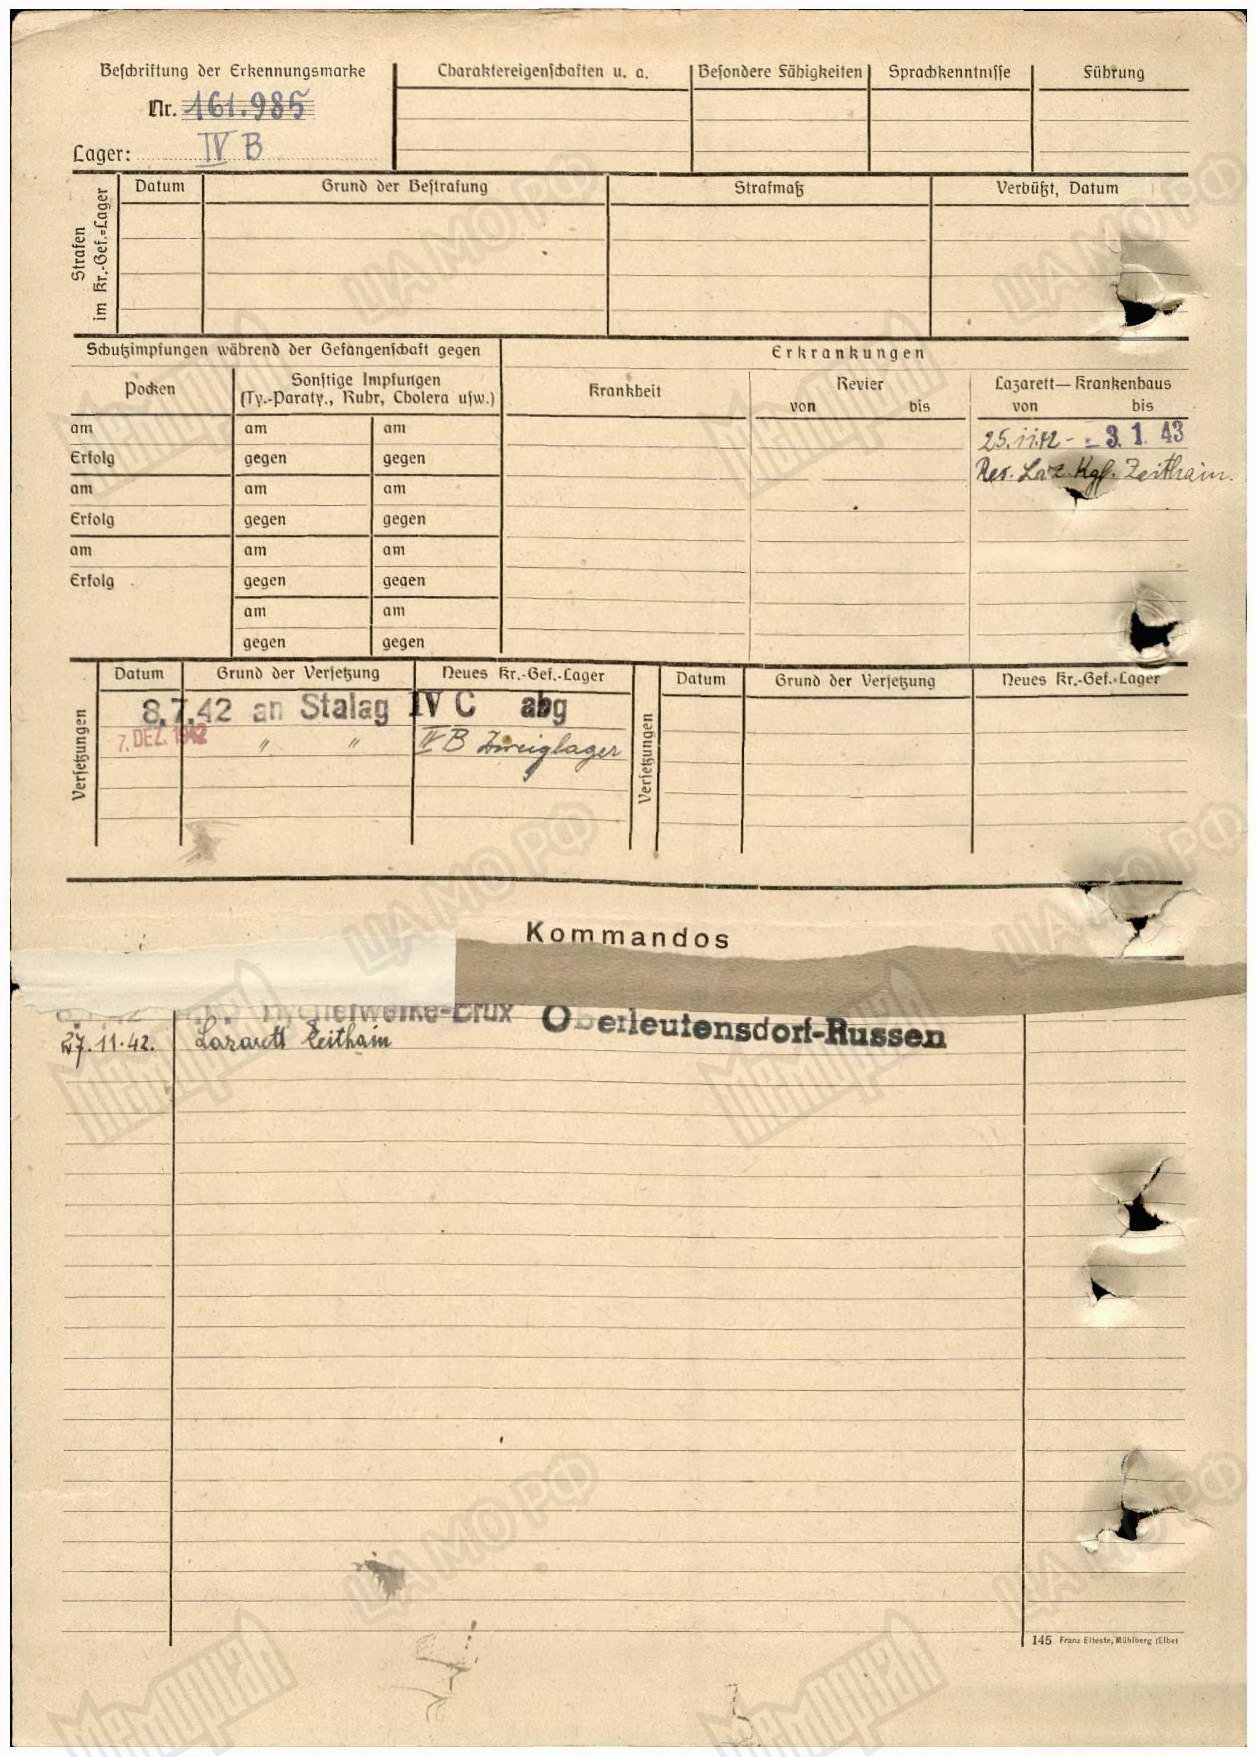 Beschriftung der Erkennungsmarke
Nr. 161.985
Lager: IV B
Charaktereigenschaften u. a.
Besondere Fähigkeiten
Sprachkenntnisse
Führung
Strafen im Kr.-Gef.=Lager
Datum
Grund der Bestrafung
Strafmaß
Verbüßt, Datum
Schutzimpfungen während der Gefangenschaft gegen
Erkrankungen
Pocken
Sonstige Impfungen
(Ty.-Paraty., Ruhr, Cholera usw.)
Krankheit
Revier
von bis
Lazarett— Krankenhaus
von bis
am am am
Erfolg gegen gegen
am am am
Erfolg gegen gegen
am am am
Erfolg gegen gegen
am am
gegen gegen
25.11.42 - - 3. 1. 43
Res. Laz. Kgf. Zeithain.
Versetzungen
Datum Grund der Versetzung Neues Kr.-Gef.-Lager
8.7.42 an Stalag IV C abg
7. DEZ. 1942 " " IV B Zweiglager
Versetzungen
Datum Grund der Versetzung Neues Kr.-Gef.-Lager
Kommandos
Oberleutensdorf-Russen
27.11.42. Lazarett Zeithain
145 Franz Elteste, Mühlberg (Elbe)
Мемориал
ЦАМО РФ